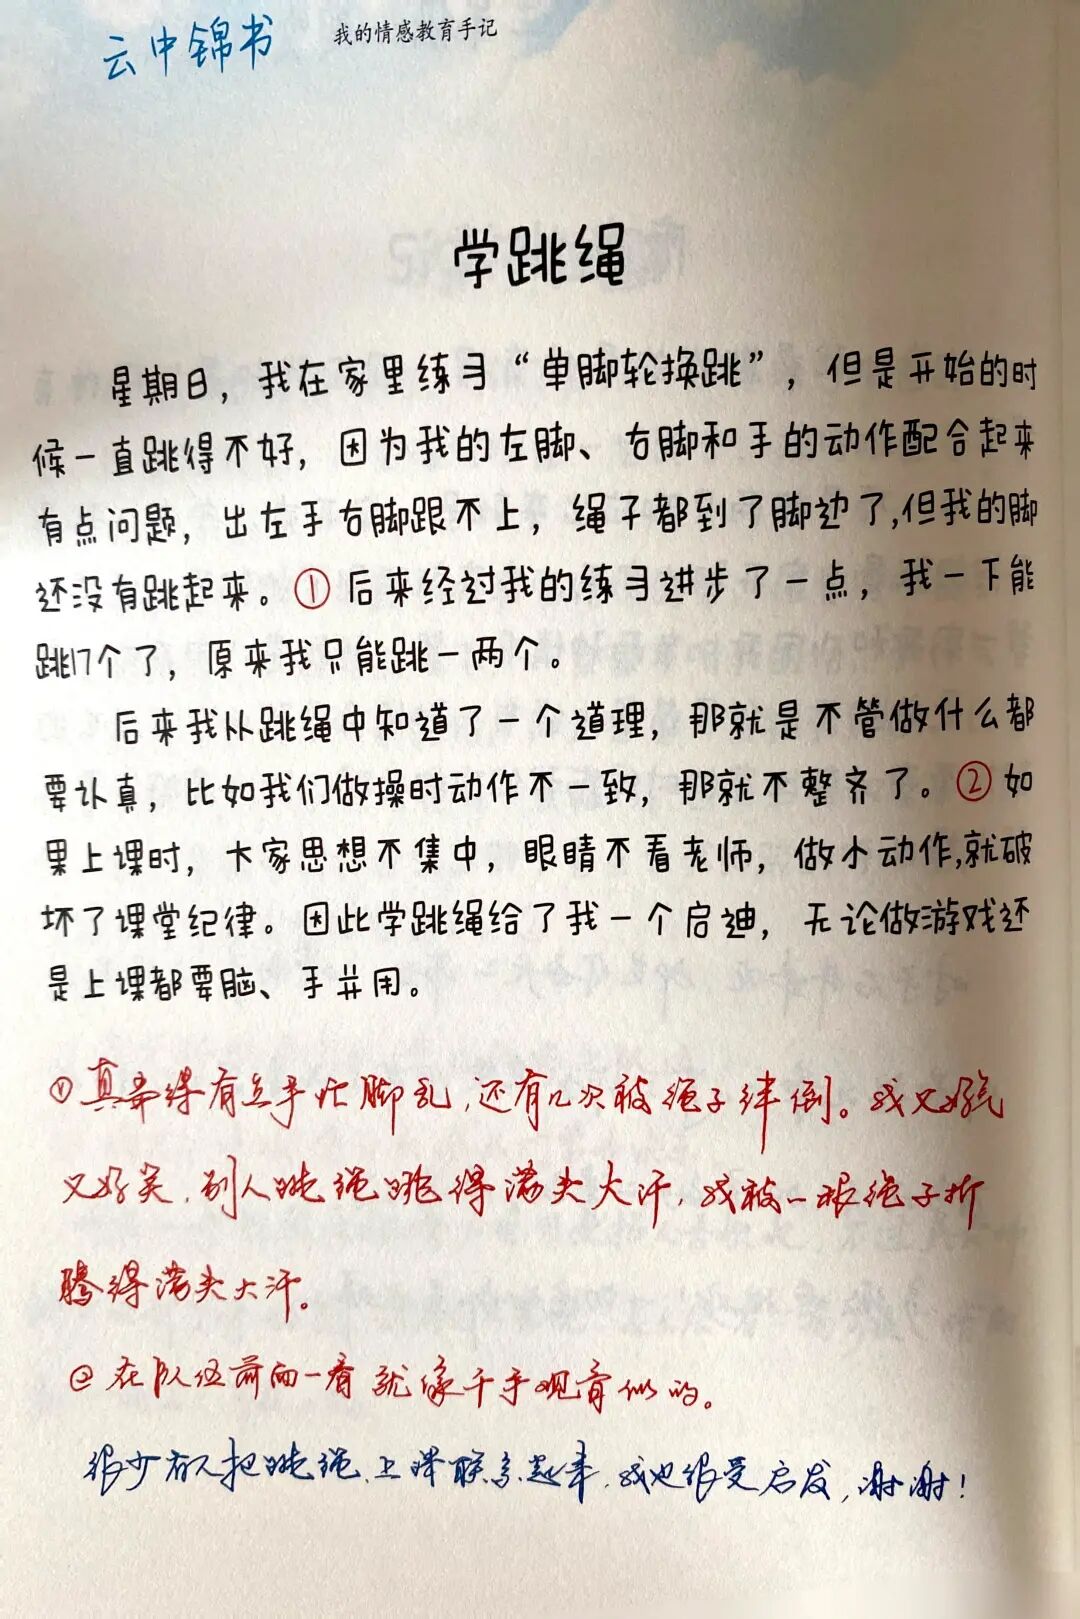 云中锦书 我的情感教育手记
学跳绳
星期日，我在家里练习“单脚轮换跳”，但是开始的时
候一直跳得不好，因为我的左脚、右脚和手的动作配合起来
有点问题，出左手右脚跟不上，绳子都到了脚边了，但我的脚
还没有跳起来。①后来经过我的练习进步了一点，我一下能
跳17个了，原来我只能跳一两个。
后来我从跳绳中知道了一个道理，那就是不管做什么都
要认真，比如我们做操时动作不一致，那就不整齐了。②如
果上课时，大家思想不集中，眼睛不看老师，做小动作，就破
坏了课堂纪律。因此学跳绳给了我一个启迪，无论做游戏还
是上课都要脑、手并用。
①真弄得有点手忙脚乱，还有几次被绳子绊倒。我又好气
又好笑，别人跳绳跳得满头大汗，我被一根绳子折
腾得满头大汗。
②在队伍前面一看就像千手观音似的。
很少有人把跳绳、上课联系起来，我也很受启发，谢谢！